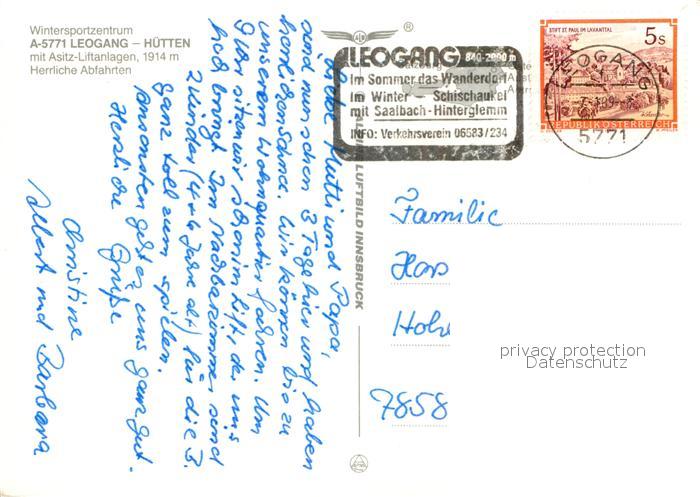 Wintersportzentrum
A-5771 LEOGANG – HÜTTEN
mit Asitz-Liftanlagen, 1914 m
Herrliche Abfahrten
®
LEOGANG 840-2000 m
Im Sommer das Wanderdorf
Im Winter – Schischaukel
mit Saalbach-Hinterglemm
INFO: Verkehrsverein 06583/234
STIFT ST. PAUL IM LAVANTTAL
5s
REPUBLIK ÖSTERREICH
LEOGANG
5771
LUFTBILD INNSBRUCK
Liebe Mutti und Papa,
sind nun schon 3 Tage hier und haben
herrlichen Schnee. Wir können bis zu
unserem Wohnquartier fahren. Um
9 Uhr sitzen wir schon im Lift, der uns
hoch bringt. Im Nachbarzimmer sind
2 Kinder (4 + 6 Jahre alt) für die B.
ganz toll zum spielen.
Ansonsten geht es uns ganz gut.
Herzliche Grüße
Christine
Albert und Barbara
Familie
Hans
7858
privacy protection
Datenschutz